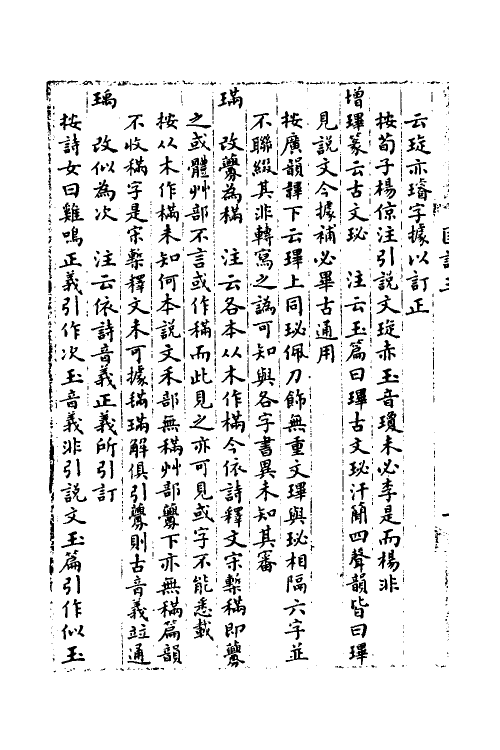 云琁亦璿字據以訂正
按荀子楊倞注引說文琁赤玉音瓊未必李是而楊非
增㻫篆云古文珌　注云玉篇曰㻫古文珌汗簡四聲韻皆曰㻫
見說文今據補必畢古通用
按廣韻䪐下云㻫上同珌佩刀飾無重文㻫與珌相隔六字並
不聯綴其非轉寫之譌可知與各字書異未知其審
璊　改虋為䅼　注云各本从木作樠今依詩釋文宋槧䅼即虋
之或體艸部不言或作䅼而此見之亦可見或字不能悉載
按从木作樠未知何本說文禾部無䅼艸部虋下亦無䅼篇韻
不收䅼字是宋槧釋文未可據𣯩璊解俱引虋則古音義竝通
瑀　改似為次　注云依詩音義正義所引訂
按詩女曰雞鳴正義引作次玉音義非引說文玉篇引作似玉